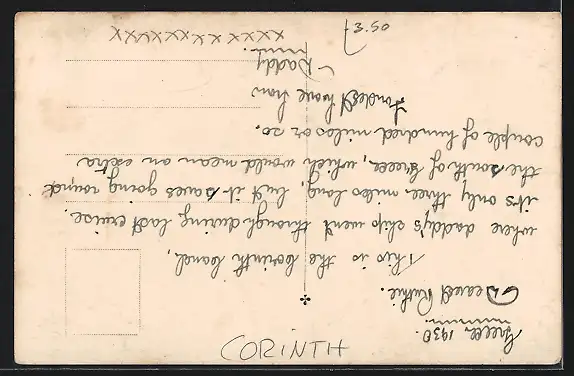 Greece 1930.
Dearest Ruthie.
This is the Corinth Canal,
where daddy's ship went through during last cruise.
it's only three miles long, but it saves going round
the south of Greece, which would mean an extra
couple of hundred miles or so.
Fondest love from
Daddy
xxxxxxxxxxxx
CORINTH
3.50